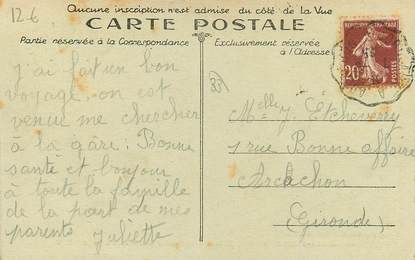 12-6
Aucune inscription n'est admise du côté de la Vue
CARTE POSTALE
Partie réservée à la Correspondance
Exclusivement réservée
à l'Adresse
j'ai fait un bon
voyage. on est
venu me chercher
à la gâre. Bonne
santé et bonjour
à toute la famille
de la part de mes
parents Juliette
33
Melle J. Etcheverry
1 rue Bonne affaire
Arcachon
(Gironde)
20c
POSTES